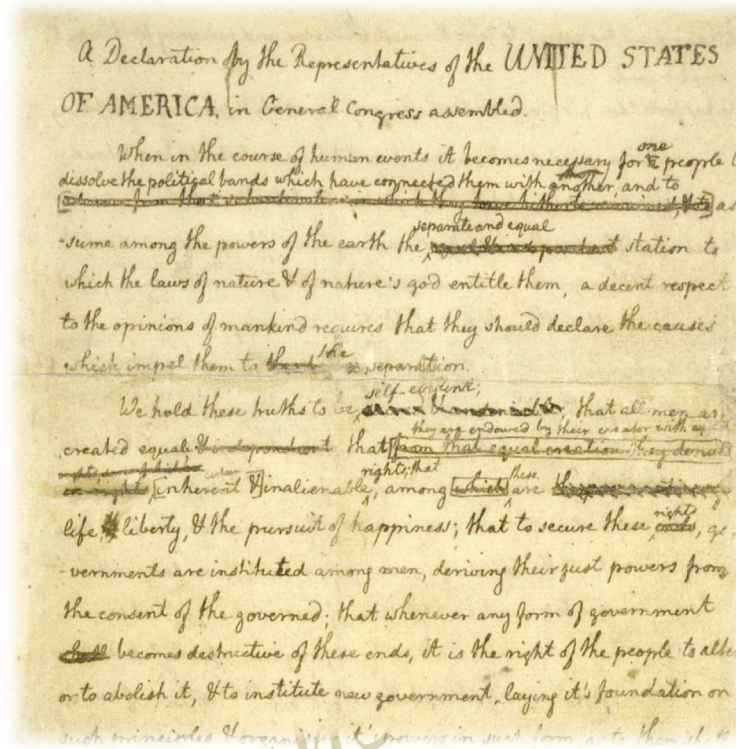 A Declaration by the Representatives of the UNITED STATES
OF AMERICA, in General Congress assembled.
one
When in the course of human events it becomes necessary for people
dissolve the political bands which have connected them with another, and to
as
separate and equal
-sume among the powers of the earth the station to
which the laws of nature & of nature's god entitle them, a decent respect
to the opinions of mankind requires that they should declare the causes
the
which impel them to separation.
self-evident;
We hold these truths to be that all men ar
they are endowed by their creator with
created equal & independant that from that equal creation they
certain
rights; that these
[inherent &] inalienable, among which are
rights
life & liberty, & the pursuit of happiness; that to secure these ends, go
-vernments are instituted among men, deriving their just powers from
the consent of the governed; that whenever any form of government
shall becomes destructive of these ends, it is the right of the people to alte
or to abolish it, & to institute new government, laying it's foundation on
such principles & organising it's powers in such form, as to them